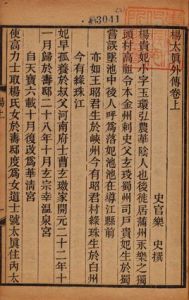 3041
楊太真外傳卷上
史官樂 史撰
楊貴妃小字玉環弘農華陰人也後徙居蒲州永樂之獨
頭村高祖令本金州刺史父玄琰蜀州司戶貴妃生於蜀
嘗誤墜池中後人呼爲落妃池池在導江縣前
亦如王昭君生於峽州今有昭君村綠珠生於白州
今有綠珠江
妃早孤養於叔父河南府士曹玄璬家開元二十二年十
一月歸於壽邸二十八年十月玄宗幸溫泉宮
自天寶六載十月復改爲華清宮
使高力士取楊氏女於壽邸度爲女道士號太真住內太